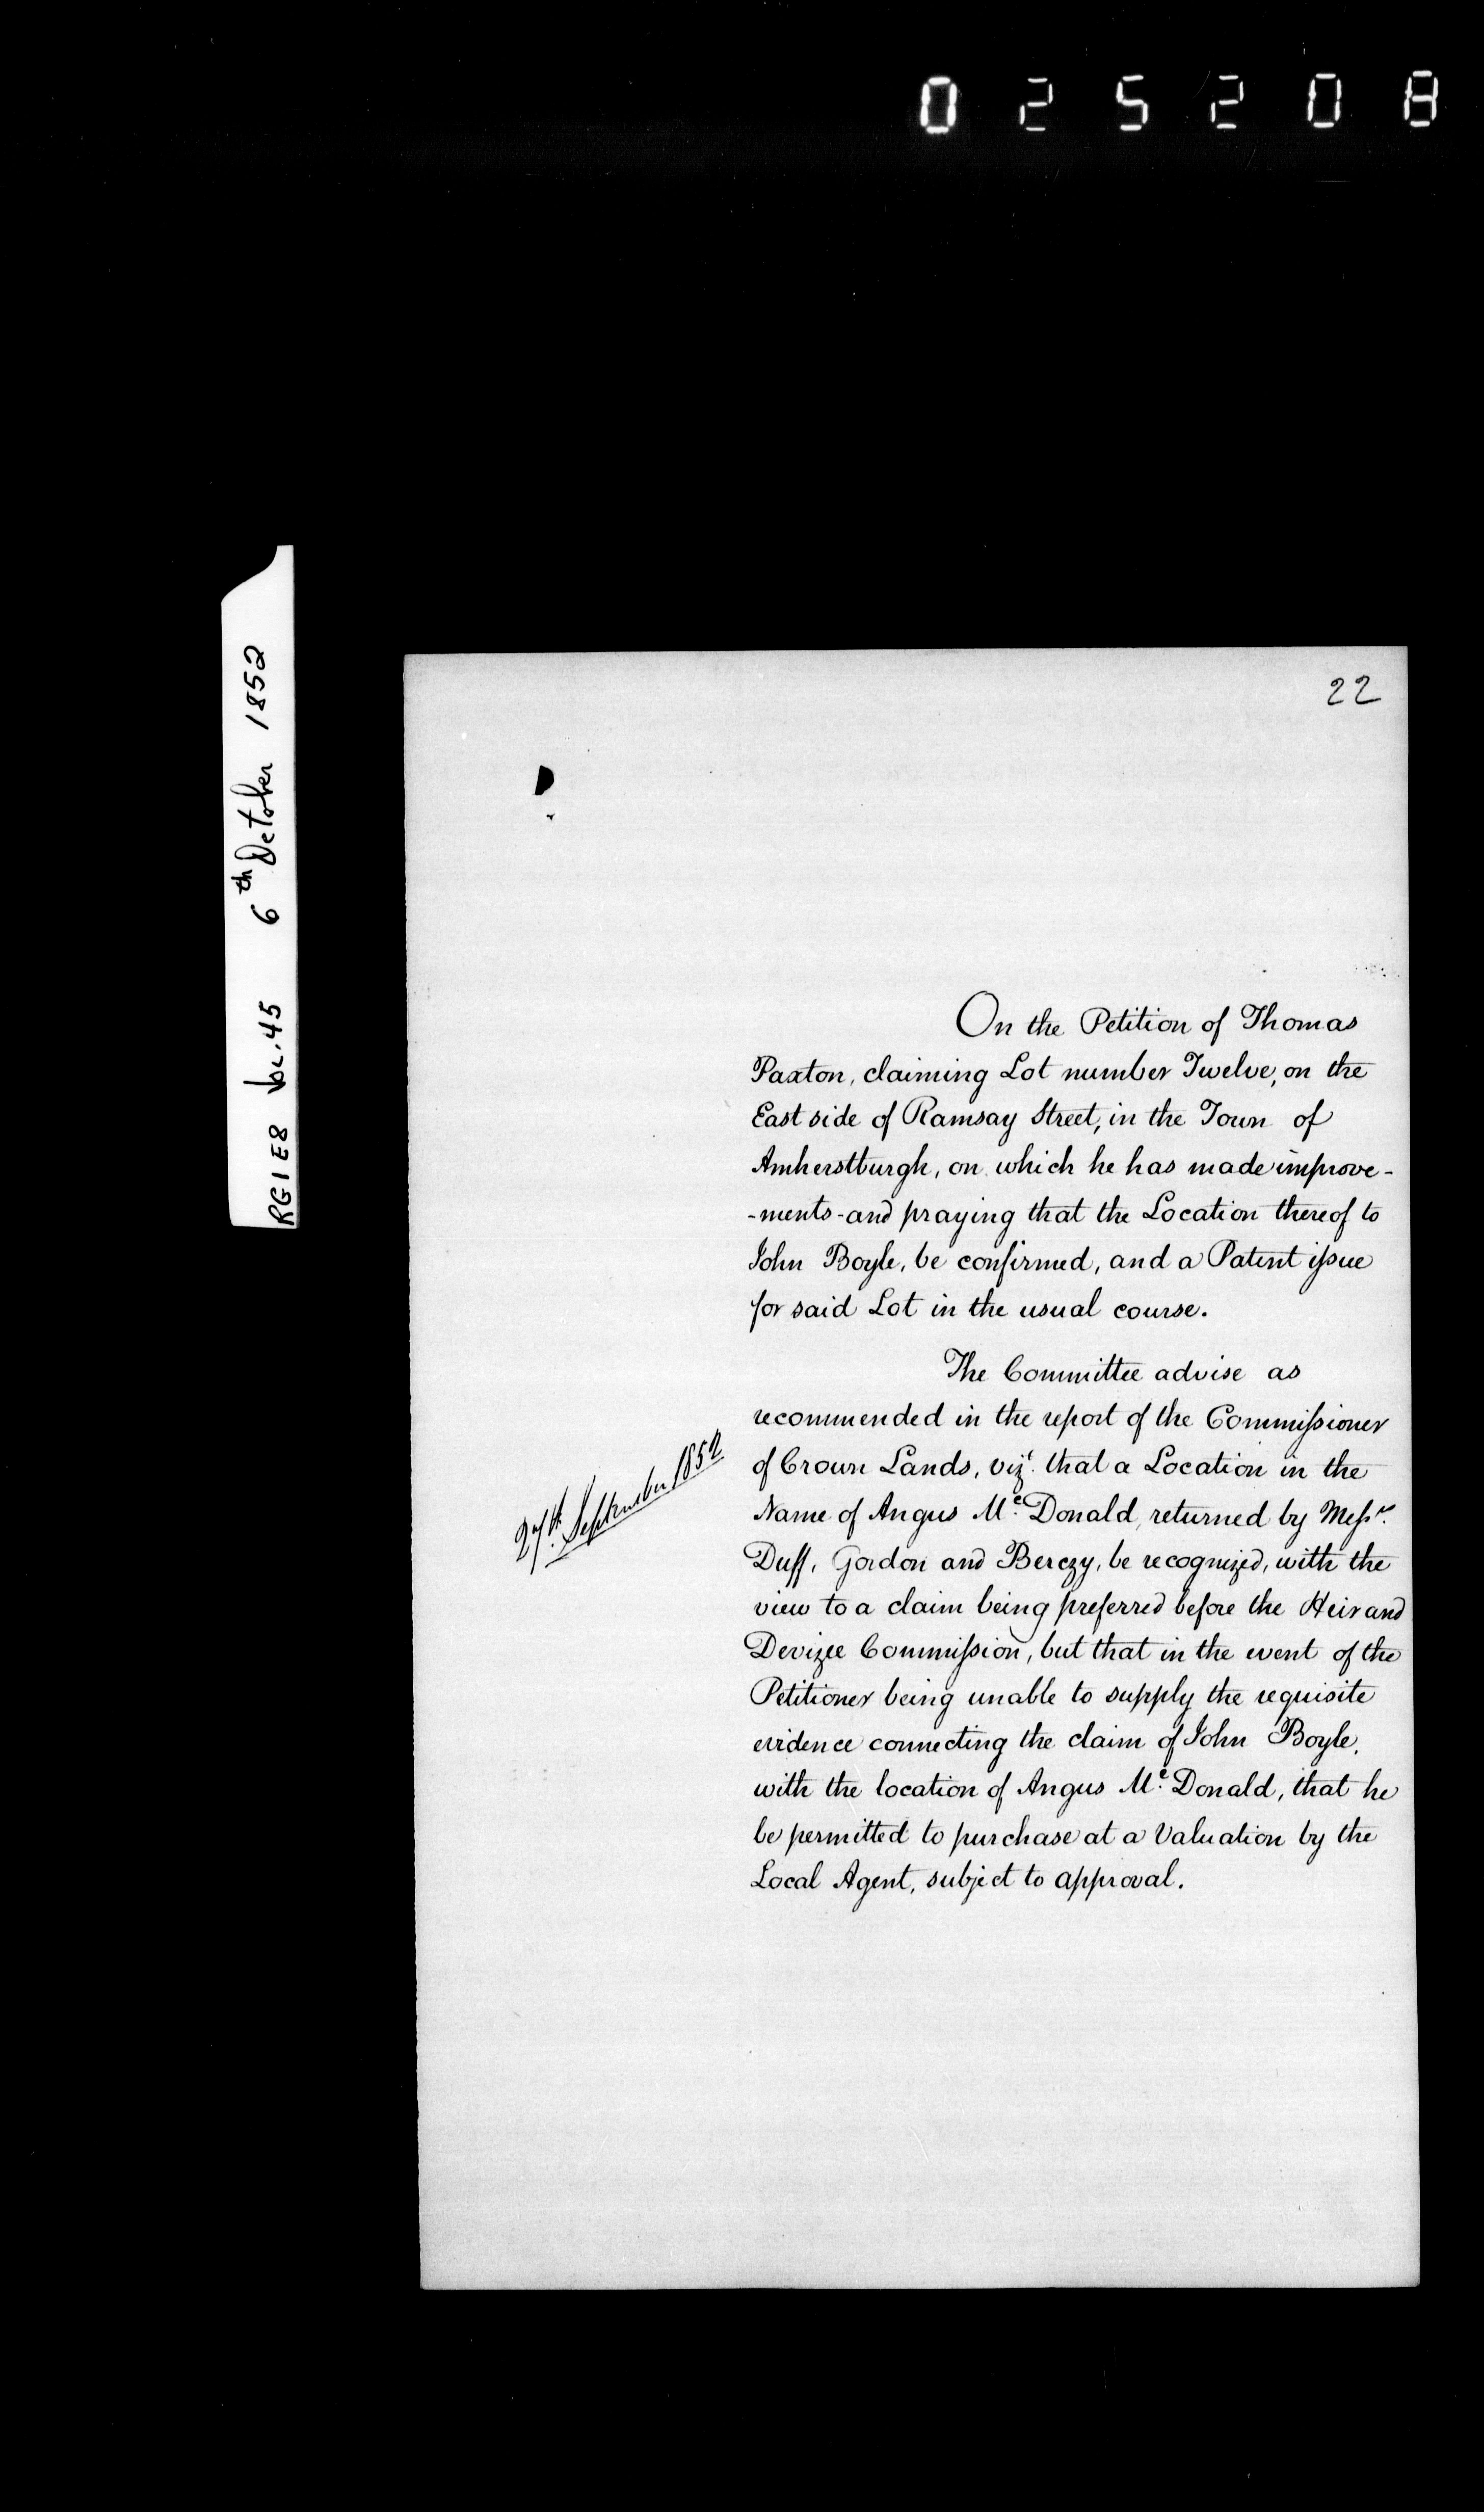 025208
RG1 E8 Vol. 45 6th October 1852
22
On the Petition of Thomas
Paxton, claiming Lot number Twelve, on the
East side of Ramsay Street, in the Town of
Amherstburgh, on which he has made improve-
-ments - and praying that the Location thereof to
John Boyle, be confirmed, and a Patent issue
for said Lot in the usual course.
The Committee advise as
recommended in the report of the Commissioner
of Crown Lands, vizt. that a Location in the
27th. September 1852
Name of Angus Mc. Donald, returned by Messrs.
Duff, Gordon and Berczy, be recognized, with the
view to a claim being preferred before the Heir and
Devizee Commission, but that in the event of the
Petitioner being unable to supply the requisite
evidence connecting the claim of John Boyle,
with the location of Angus Mc. Donald, that he
be permitted to purchase at a Valuation by the
Local Agent, subject to approval.